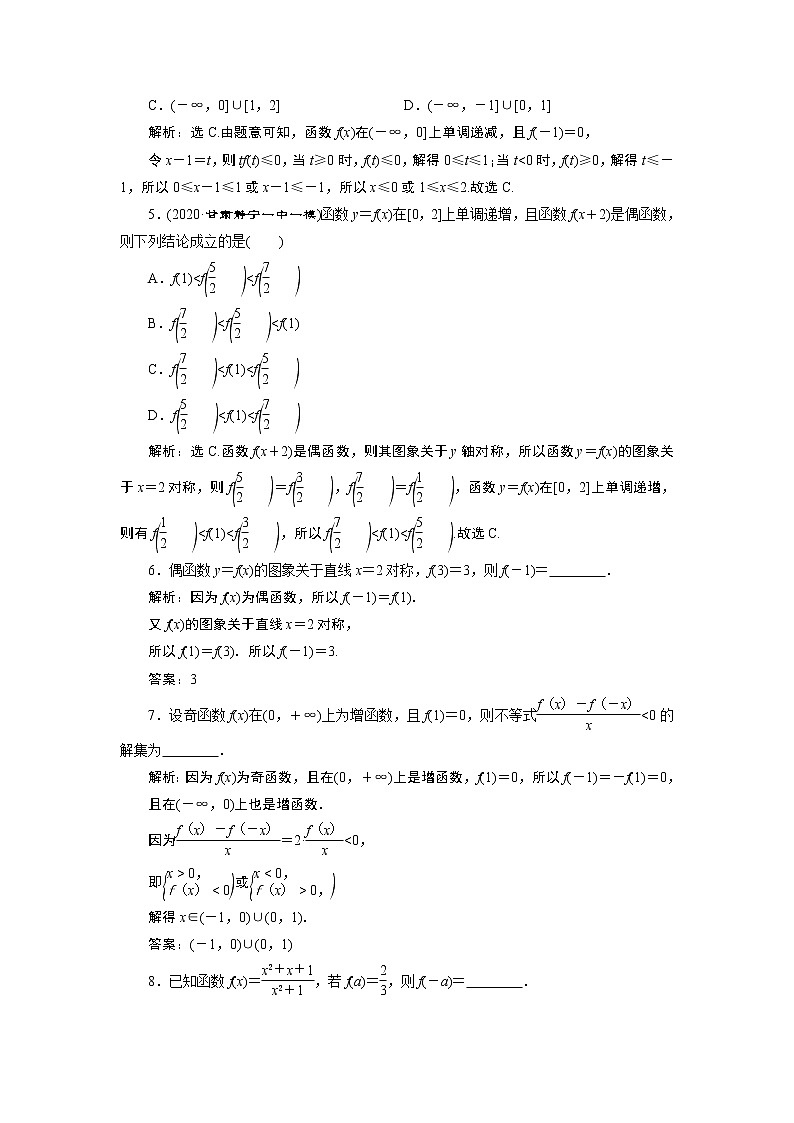 C．(－∞，0]∪[1，2]　　　　D．(－∞，－1]∪[0，1]
解析：选C.由题意可知，函数f(x)在(－∞，0]上单调递减，且f(－1)＝0，
令x－1＝t，则tf(t)≤0，当t≥0时，f(t)≤0，解得0≤t≤1；当t<0时，f(t)≥0，解得t≤－
1，所以0≤x－1≤1或x－1≤－1，所以x≤0或1≤x≤2.故选C.
5．(2020·甘肃静宁一中一模)函数y＝f(x)在[0，2]上单调递增，且函数f(x＋2)是偶函数，
则下列结论成立的是(　　)
A．f(1)<f(5/2)<f(7/2)
B．f(7/2)<f(5/2)<f(1)
C．f(7/2)<f(1)<f(5/2)
D．f(5/2)<f(1)<f(7/2)
解析：选C.函数f(x＋2)是偶函数，则其图象关于y轴对称，所以函数y＝f(x)的图象关
于x＝2对称，则f(5/2)＝f(3/2)，f(7/2)＝f(1/2)，函数y＝f(x)在[0，2]上单调递增，
则有f(1/2)<f(1)<f(3/2)，所以f(7/2)<f(1)<f(5/2).故选C.
6．偶函数y＝f(x)的图象关于直线x＝2对称，f(3)＝3，则f(－1)＝________．
解析：因为f(x)为偶函数，所以f(－1)＝f(1)．
又f(x)的图象关于直线x＝2对称，
所以f(1)＝f(3)．所以f(－1)＝3.
答案：3
7．设奇函数f(x)在(0，＋∞)上为增函数，且f(1)＝0，则不等式(f（x）－f（－x）)/x<0的
解集为________．
解析：因为f(x)为奇函数，且在(0，＋∞)上是增函数，f(1)＝0，所以f(－1)＝－f(1)＝0，
且在(－∞，0)上也是增函数．
因为(f（x）－f（－x）)/x＝2·f（x）/x<0，
即{x＞0，f（x）＜0或{x＜0，f（x）＞0，
解得x∈(－1，0)∪(0，1)．
答案：(－1，0)∪(0，1)
8．已知函数f(x)＝(x²＋x＋1)/(x²＋1)，若f(a)＝2/3，则f(－a)＝________．